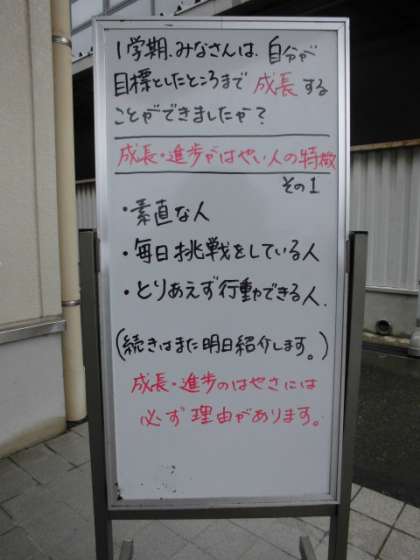 1学期、みなさんは、自分が
目標としたところまで成長する
ことができましたか?
成長・進歩がはやい人の特徴
その1
・素直な人
・毎日挑戦をしている人
・とりあえず行動できる人.
(続きはまた明日紹介します。)
成長・進歩のはやさには
必ず理由があります。